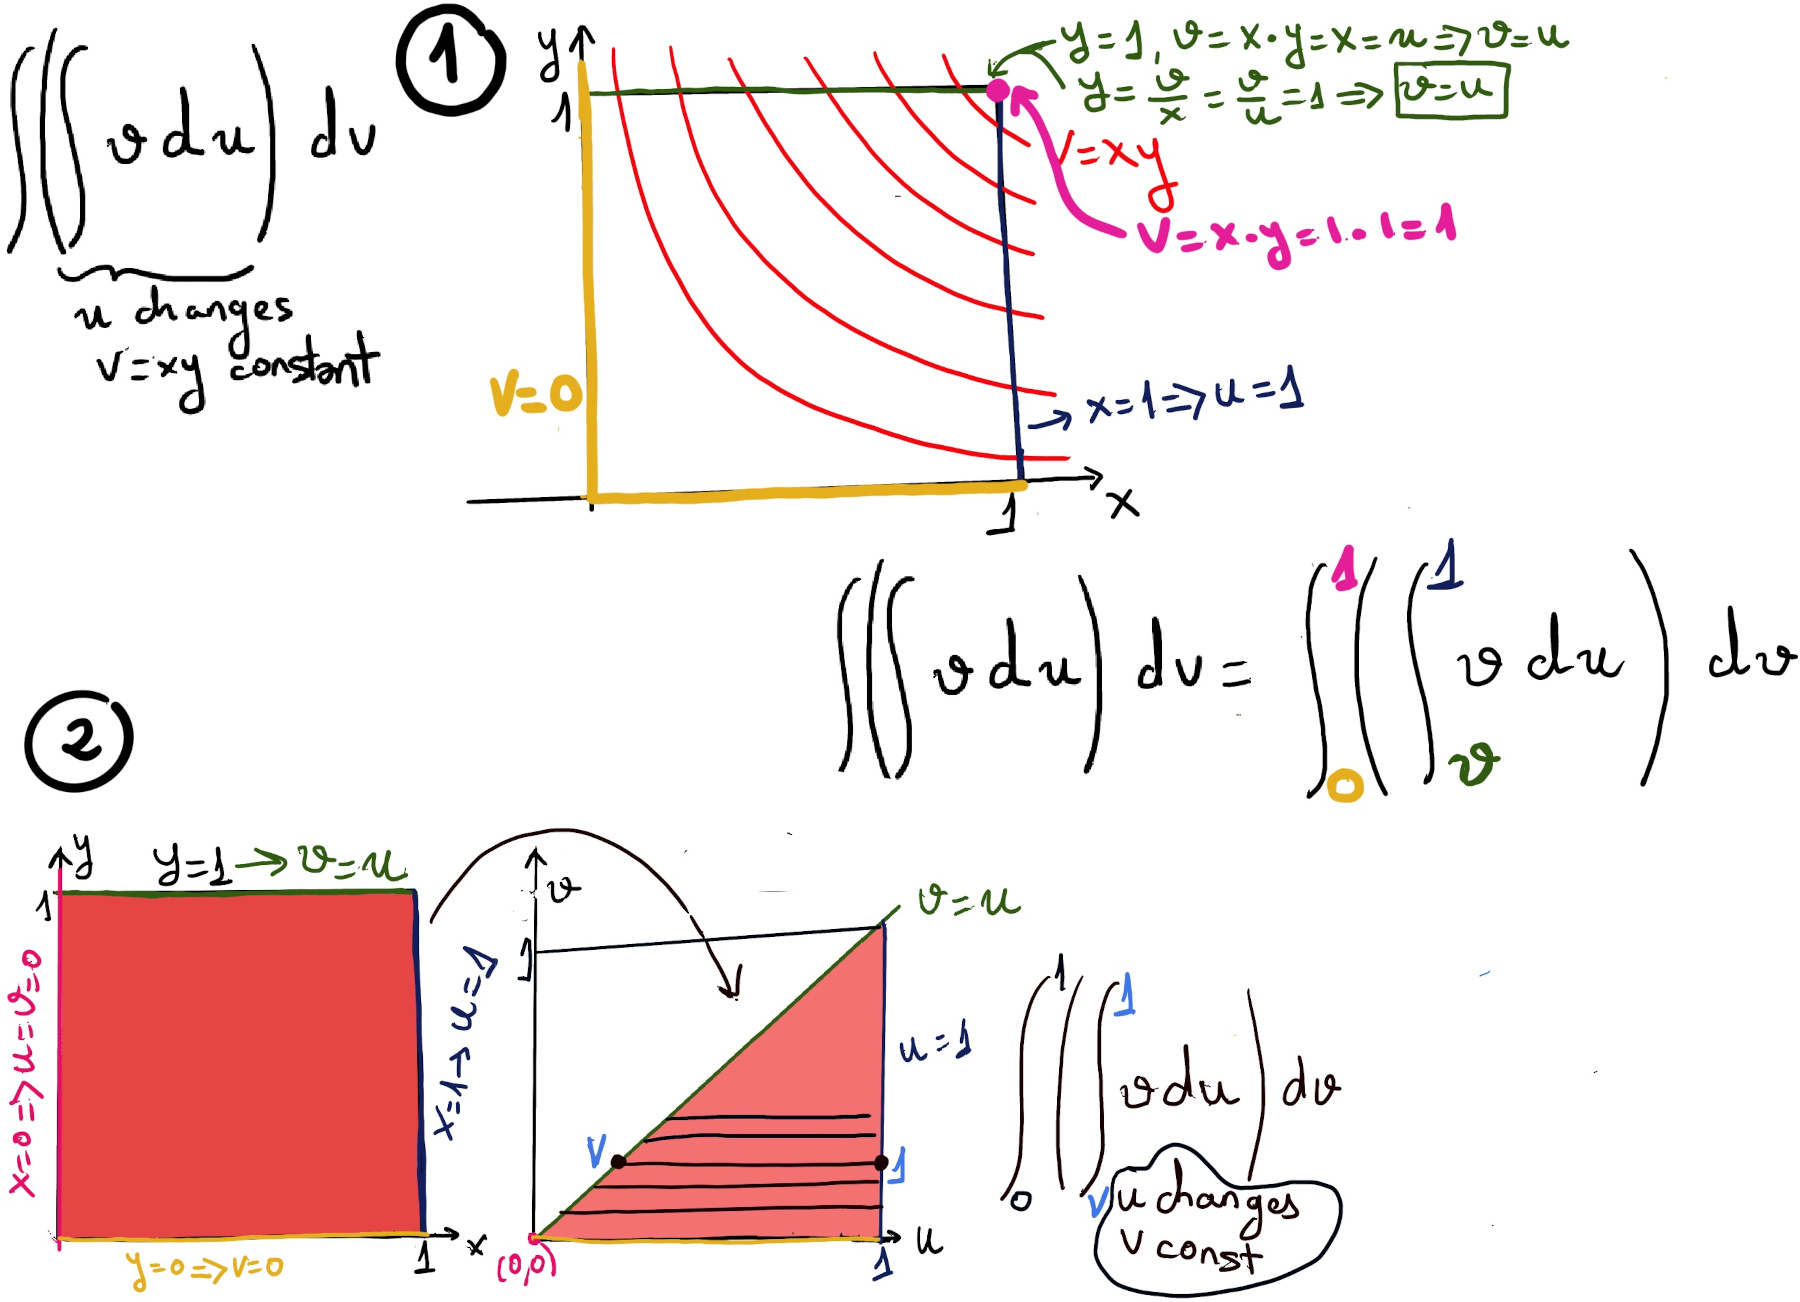 ∫(∫ v du) dv
u changes
v=xy constant
1
y
1
y=1, v=x·y=x=u⇒v=u
y=v/x=v/u=1⇒ v=u
V=xy
V=x·y=1·1=1
V=0
→ x=1⇒u=1
1
x
∫(∫ v du) dv = ∫₀¹(∫ᵥ¹ v du) dv
2
y
1
y=1→v=u
x=0⇒u=v=0
x=1→u=1
y=0⇒v=0
1
x
v
1
v=u
u=1
V
1
(0,0)
1
u
∫₀¹(∫ᵥ¹ v du) dv
u changes
v const